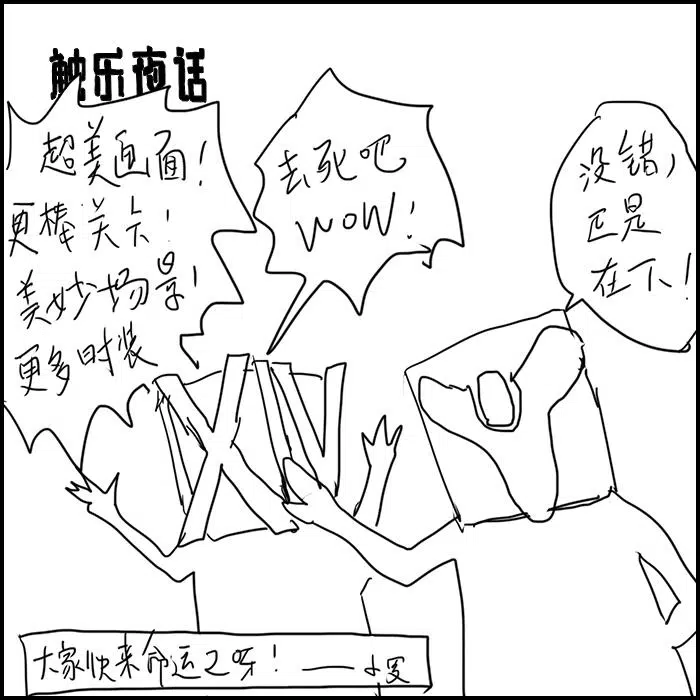 触乐夜话
超美画面!
更棒关卡!
美妙场景!
更多时装
去死吧
WOW!
没错,
正是
在下!
XIV
大家快来命运2呀! ——小罗